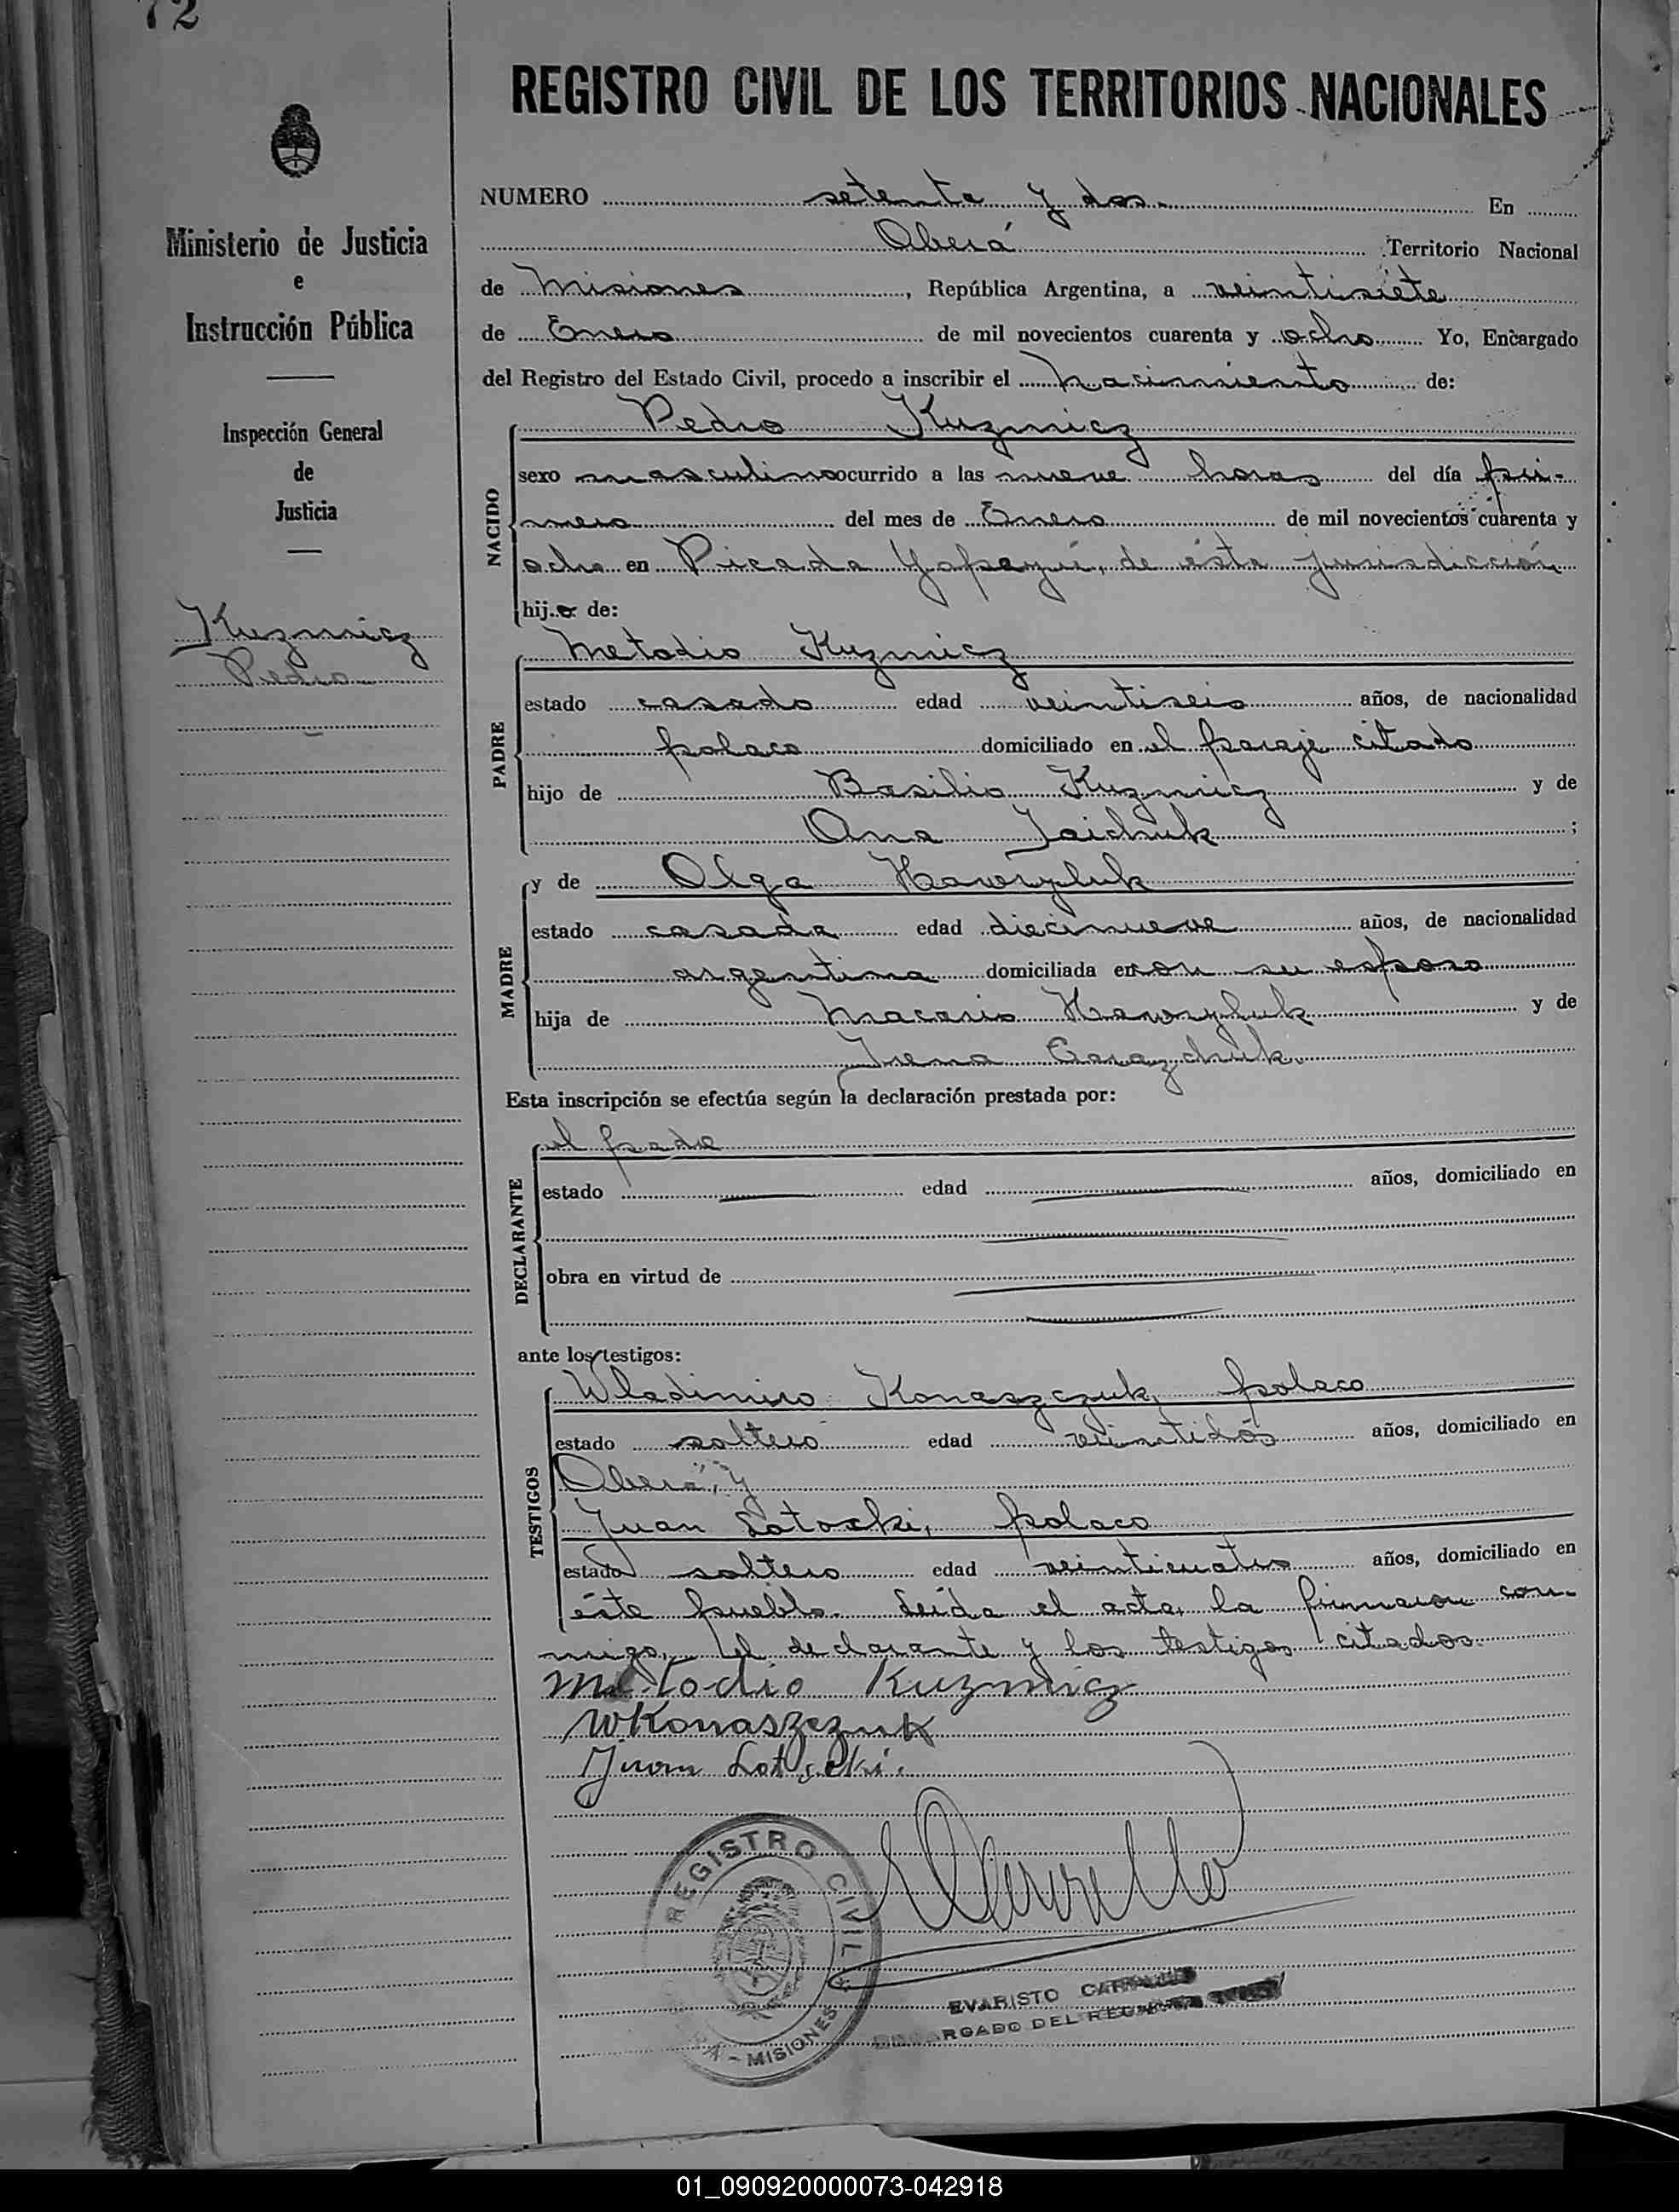 72
REGISTRO CIVIL DE LOS TERRITORIOS NACIONALES
Ministerio de Justicia
e
Instrucción Pública
Inspección General
de
Justicia
Kuzmicz
Pedro
NUMERO setenta y dos.- En
Oberá Territorio Nacional
de Misiones, República Argentina, a veintisiete
de Enero de mil novecientos cuarenta y ocho Yo, Encargado
del Registro del Estado Civil, procedo a inscribir el nacimiento de:
Pedro Kuzmicz
NACIDO
sexo masculino ocurrido a las nueve horas del día pri-
mero del mes de Enero de mil novecientos cuarenta y
ocho en Picada Yapeyú, de ésta jurisdicción
hijo de:
PADRE
Metodio Kuzmicz
estado casado edad veintiseis años, de nacionalidad
polaco domiciliado en el paraje citado
hijo de Basilio Kuzmicz y de
Ana ;
MADRE
y de Olga Hawryluk
estado casada edad diecinueve años, de nacionalidad
argentina domiciliada en con su esposo
hija de Macario Hawryluk y de
Irena
Esta inscripción se efectúa según la declaración prestada por:
DECLARANTE
el padre
estado edad años, domiciliado en
obra en virtud de
ante los testigos:
TESTIGOS
Wladimiro Konaszczuk, polaco
estado soltero edad veintidós años, domiciliado en
Oberá, y
Juan Lotocki, polaco
estado soltero edad veinticuatro años, domiciliado en
éste pueblo. Leída el acta, la firmaron con-
migo, el declarante y los testigos citados.
Metodio Kuzmicz
WKonaszczuk
Juan Lotocki.
REGISTRO CIVIL
MISIONES
EVARISTO
ENCARGADO DEL REGISTRO
01_090920000073-042918